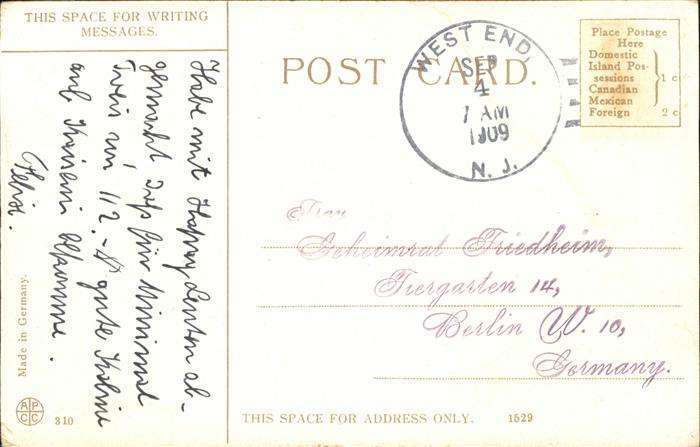 THIS SPACE FOR WRITING
MESSAGES.
Habe mit Hapag
gemacht
112.- gute Kabine
auf
Felix.
Made in Germany.
APCC
310
POST CARD.
WEST END,
SEP
4
7 AM
1909
N. J.
Place Postage
Here
Domestic
Island Pos-
sessions
Canadian
Mexican
1 c
Foreign 2 c
Frau
Geheimrat Friedheim,
Tiergarten 14,
Berlin W. 10,
Germany.
THIS SPACE FOR ADDRESS ONLY. 1529